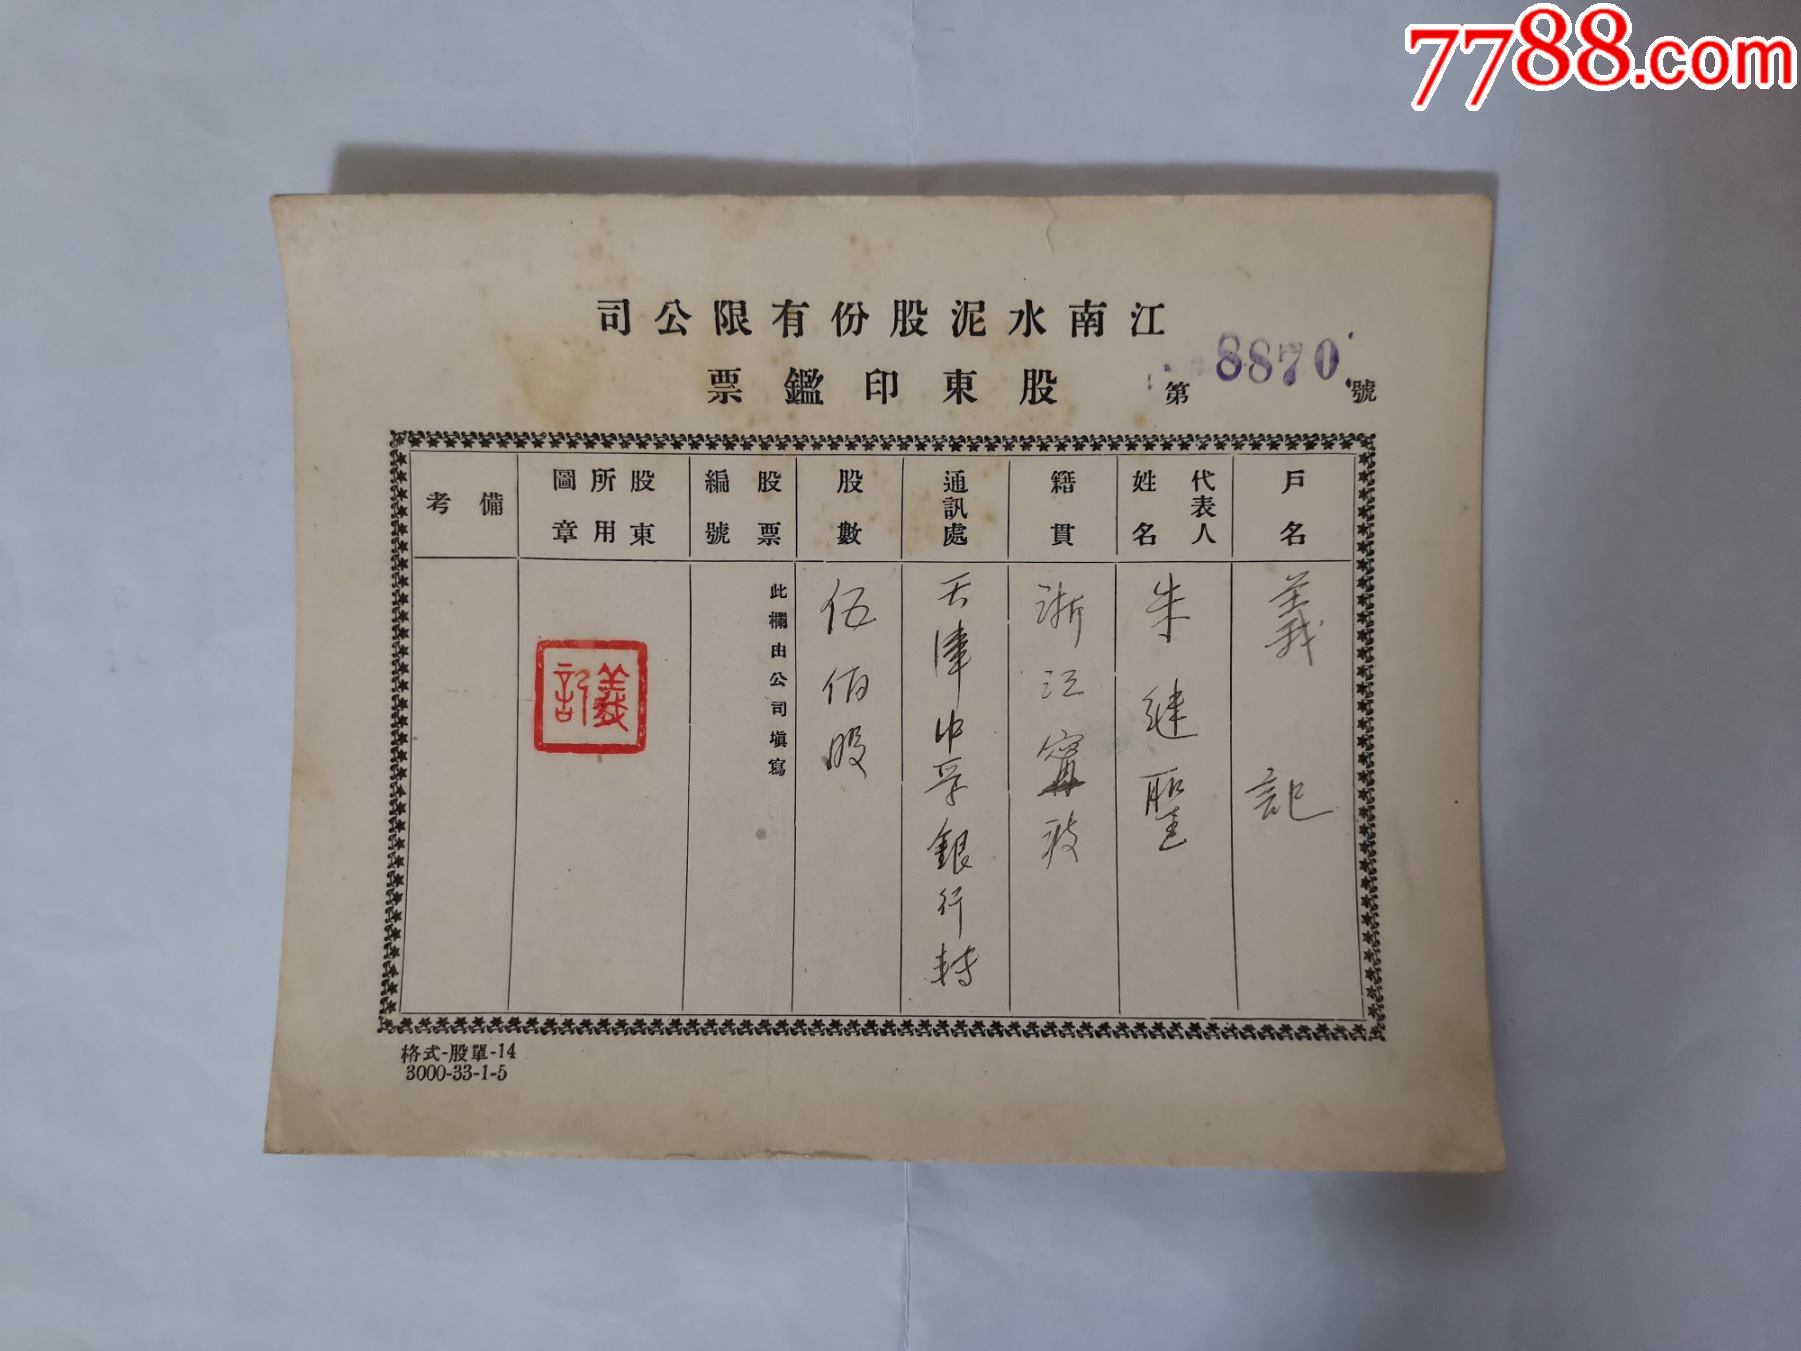 7788.com
江南水泥股份有限公司
股東印鑑票
第8870號
戶名
義記
代表人姓名
朱継聖
籍貫
浙江寗波
通訊處
天津中孚銀行轉
股數
伍佰股
股票編號
此欄由公司塡寫
股東所用圖章
義記
備考
格式-股單-14
3000-33-1-5